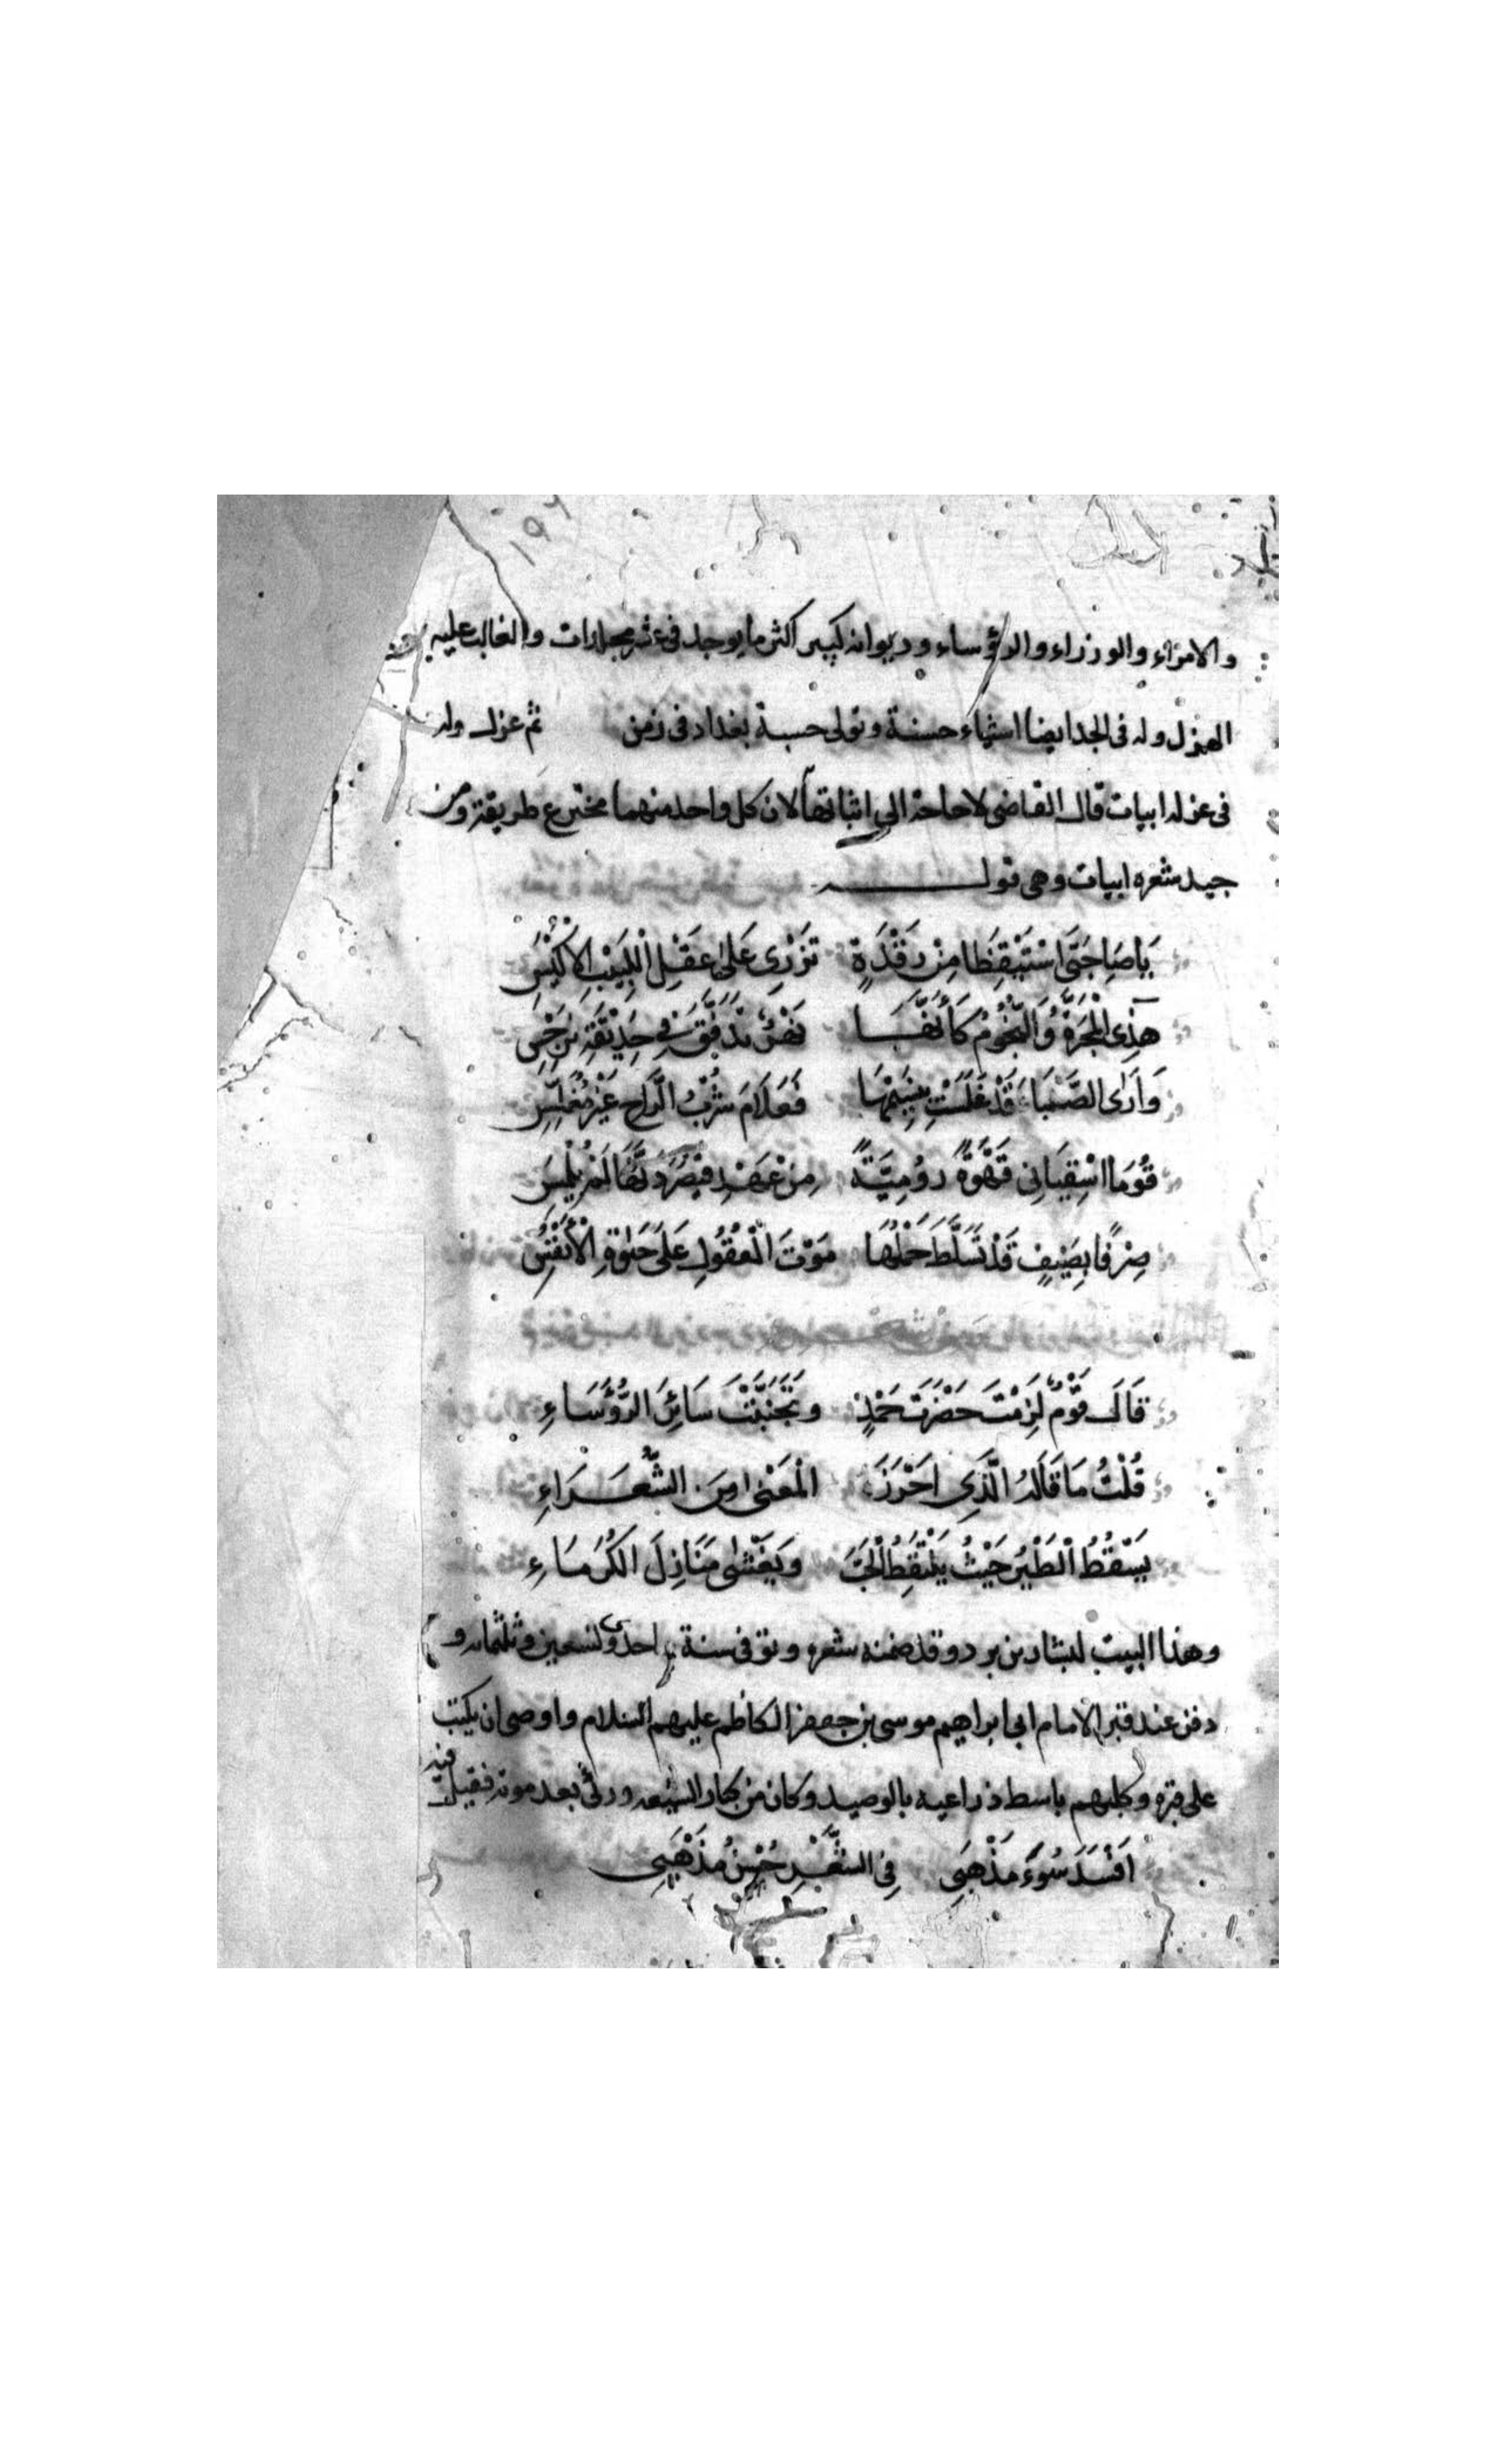 ١٩٢
والامراء والوزراء والرؤساء وديوانه كبير اكثر ما يوجد في عشر مجلدات والغالب عليه
الهزل وله في الجد ايضا اشياء حسنة وتولى حسبة بغداد في زمن ثم عزل وله
في عزله ابيات قال القاضي لا حاجة الى اثباتها لان كل واحد منهما مخترع طريقة ومن
جيد شعره ابيات وهي قوله
يَا صَاحِبَيَّ اسْتَيْقِظَا مِنْ رَقْدَةٍ تُزْرِي عَلَى عَقْلِ اللَّبِيْبِ الاَكْيَسِ
هَذِي الْمَجَرَّةُ وَالنُّجُوْمُ كَأَنَّهَا نَهْرٌ تَدَفَّقَ فِي حَدِيْقَةِ نَرْجِسِ
وَاَرَى الصَّبَا قَدْ غَلَّسَتْ بِنَسِيْمِهَا فَعَلَامَ شُرْبُ الرَّاحِ غَيْرُ مُغَلَّسِ
قُوْمَا اسْقِيَانِي قَهْوَةً رُوْمِيَّةً مِنْ عَهْدِ قَيْصَرَ دَنُّهَا لَمْ يُمْسَسِ
صِرْفًا تُضِيْفُ قَدْ تَسَلَّطَ حُكْمُهَا مَوْتَ الْعُقُوْلِ عَلَى حَيٰوةِ الْأَنْفُسِ
قَالَ قَوْمٌ لَزِمْتَ حَضْرَتَ حَمْدٍ وَتَجَنَّبْتَ سَائِرَ الرُّؤَسَاءِ
قُلْتُ مَا قَالَهُ الَّذِي اَحْرَزَ الْمَعْنَى مِنَ الشُّعَرَاءِ
يَسْقُطُ الْطَيْرُ حَيْثُ يَلْتَقِطُ الْحَبَّ وَيَغْشَى مَنَازِلَ الكُرَمَاءِ
وهذا البيت لبشار بن برد وقد ضمنه شعره وتوفي سنة احدى وتسعين وثلثمائه و
دفن عند قبر الامام ابي ابراهيم موسى بن جعفر الكاظم عليهم السلام واوصى ان يكتب
على قبره وكلبهم باسط ذراعيه بالوصيد وكان من كبار الشيعه ورئي بعد موته فقيل
اَفْسَدَ سُوْءُ مَذْهَبِي فِي الشِّعْرِ حُسْنَ مَذْهَبِي